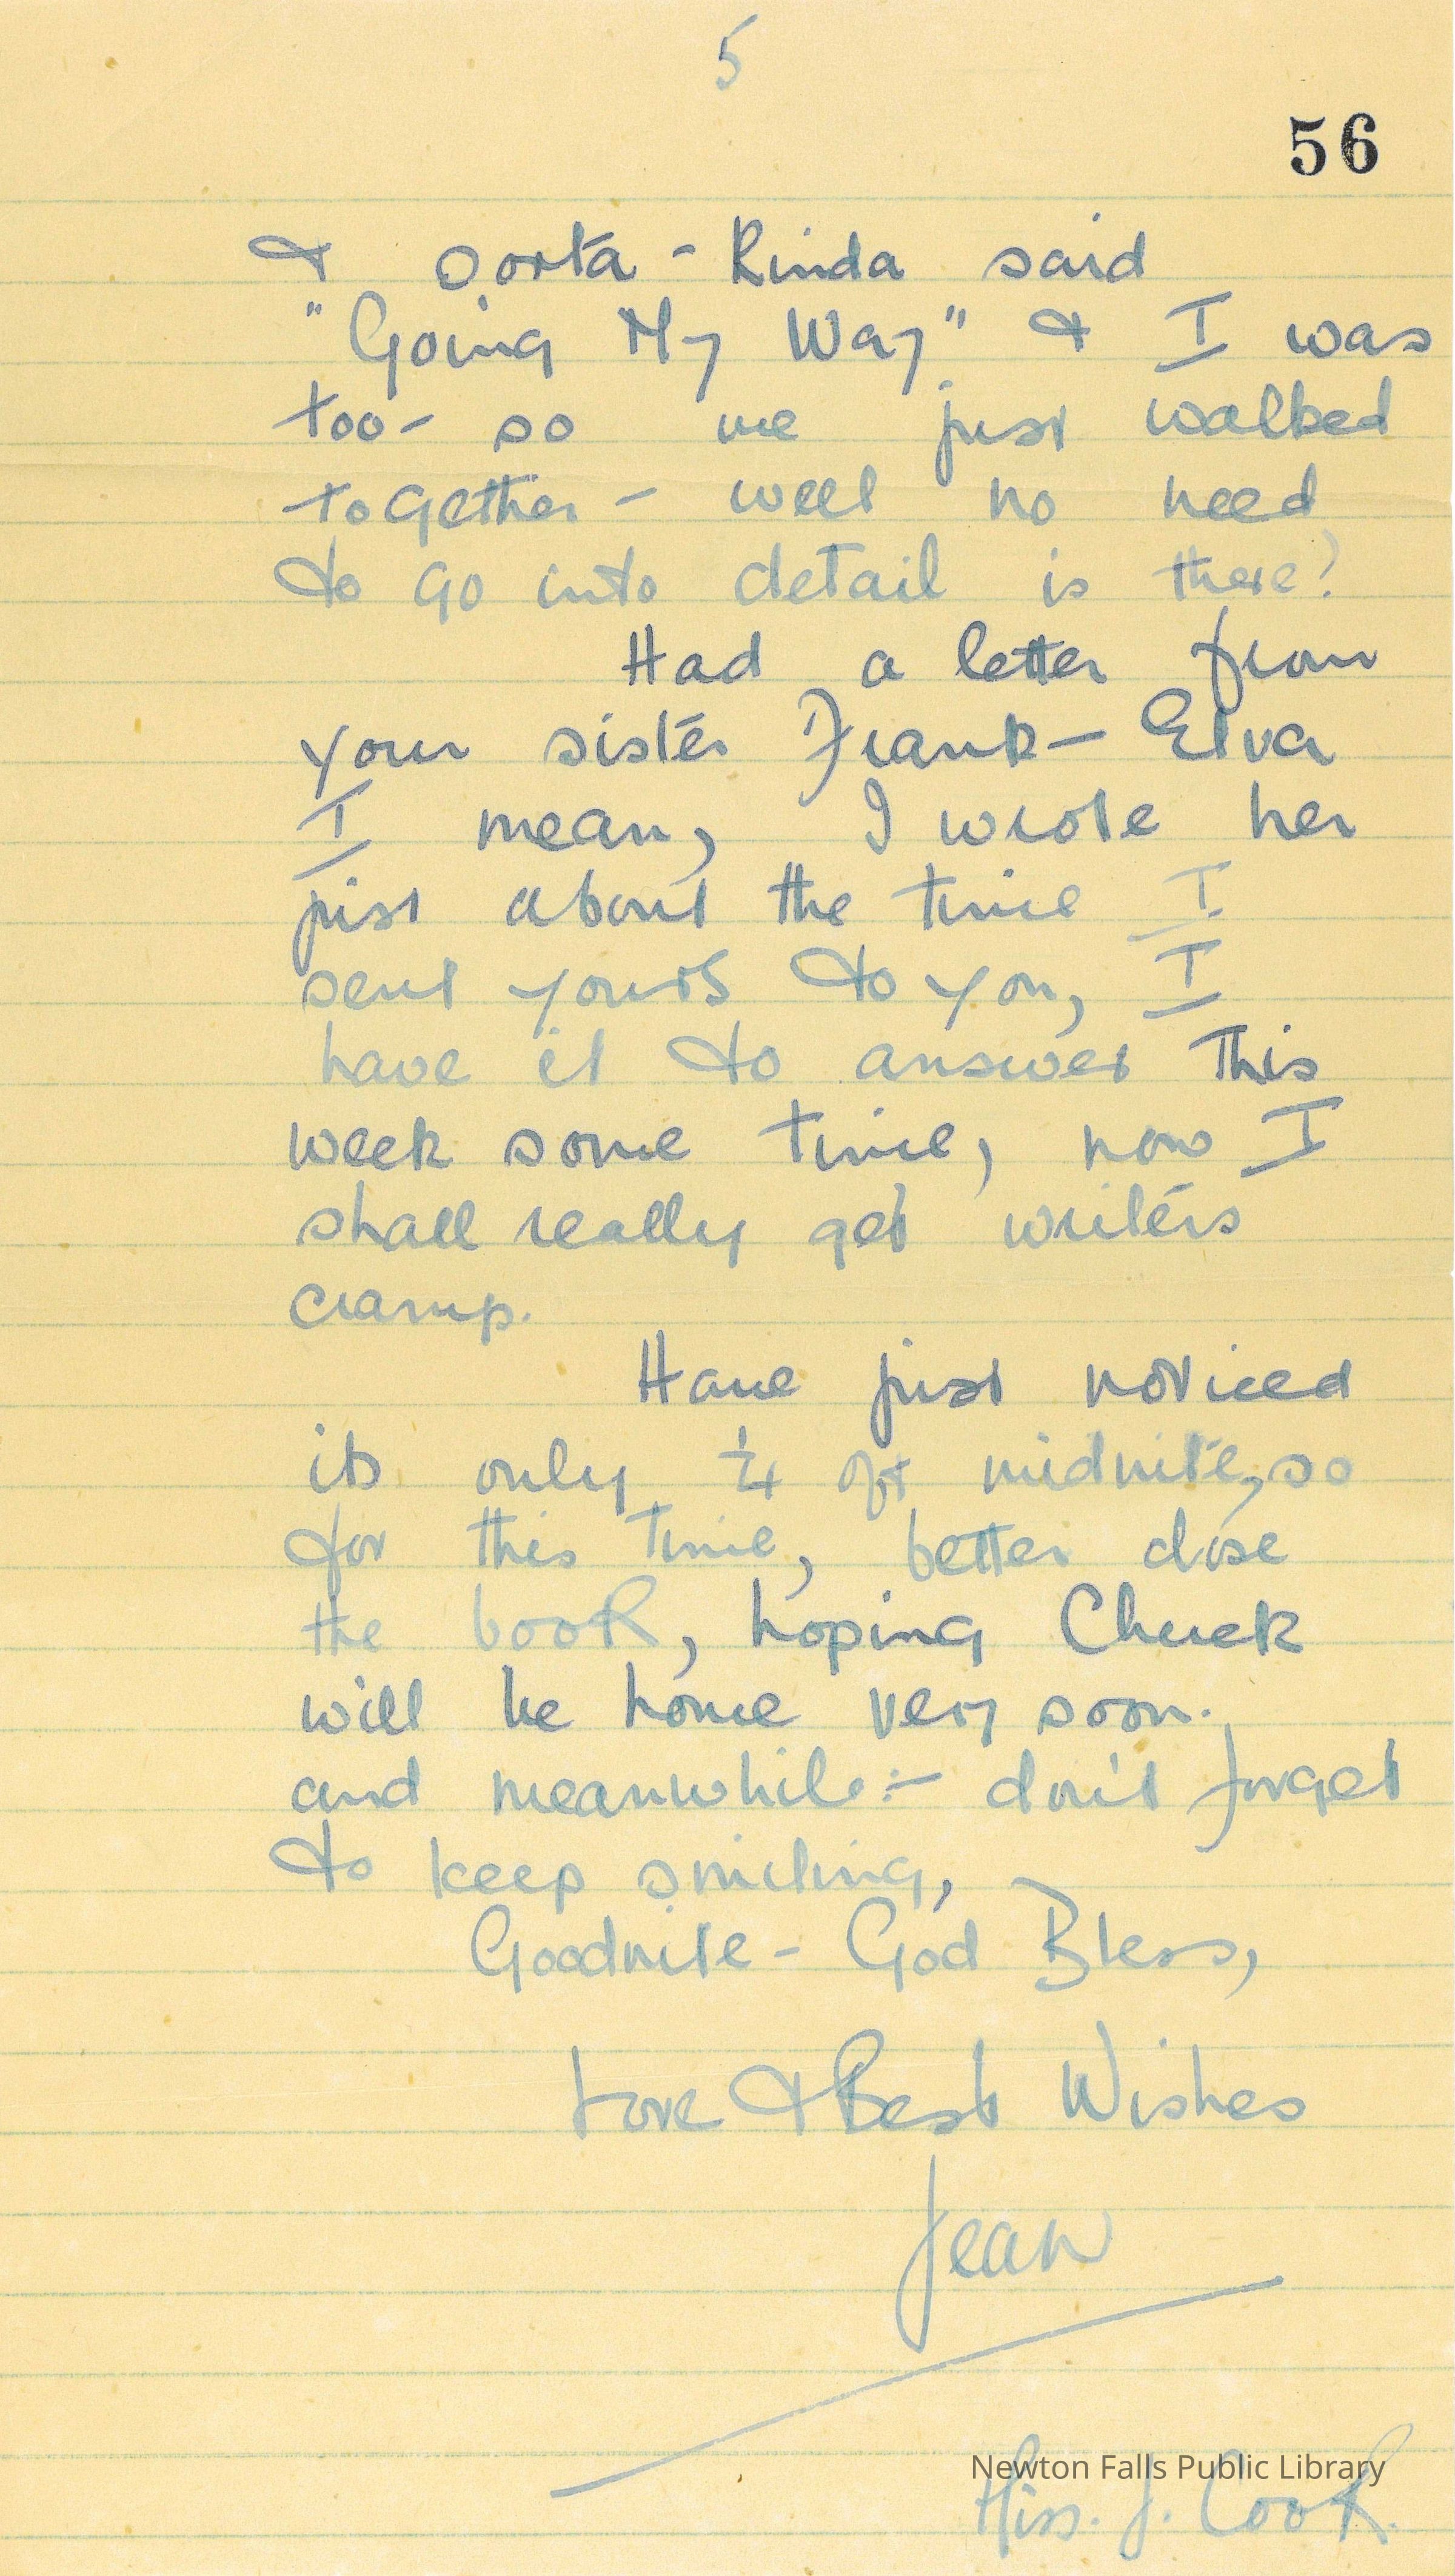 5
56
& sorta - kinda said
"Going My Way" & I was
too - so we just walked
together - well no need
to go into detail is there?
Had a letter from
your sister Frank - Elva
I mean, I wrote her
just about the time I
sent yours to you, I
have it to answer this
week some time, now I
shall really get writers
cramp.
Have just noticed
its only ¼ of midnite, so
for this time, better close
the book, hoping Chuck
will be home very soon.
and meanwhile :- don't forget
to keep smiling,
Goodnite - God Bless,
Love & Best Wishes
Jean
Newton Falls Public Library
Miss. J. Cook.